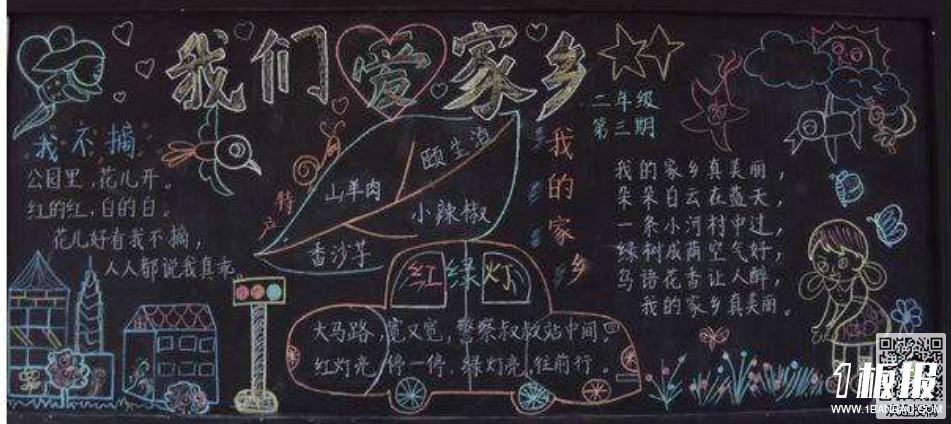 我们爱家乡
二年级
第三期
我不摘
公园里，花儿开。
红的红，白的白。
花儿好看我不摘，
人人都说我真乖。
特产
颐生酒
山羊肉
小辣椒
香沙芋
我的家乡
我的家乡真美丽，
朵朵白云在蓝天，
一条小河村中过，
绿树成荫空气好，
鸟语花香让人醉，
我的家乡真美丽。
红绿灯
大马路，宽又宽，警察叔叔站中间。
红灯亮，停一停，绿灯亮，往前行。
1板报
WWW.1BANBAO.COM